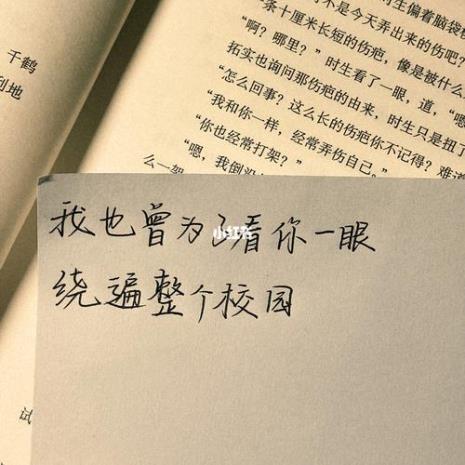 千鹤
利地
不是今天弄出来的伤吧?
时生偏着脑袋
条十厘米长短的伤疤,像是被什么
“啊?哪里?”时生看了一眼,道,“嗯
拓实也询问那伤疤的由来,时生只是扭了
“怎么回事?这么长的伤疤你不记得?难道
“我和你一样,经常弄伤自己。”
“你也经常打架?”
“嗯,我倒没
么一架
我也曾为了看你一眼
小红书
绕遍整个校园
试